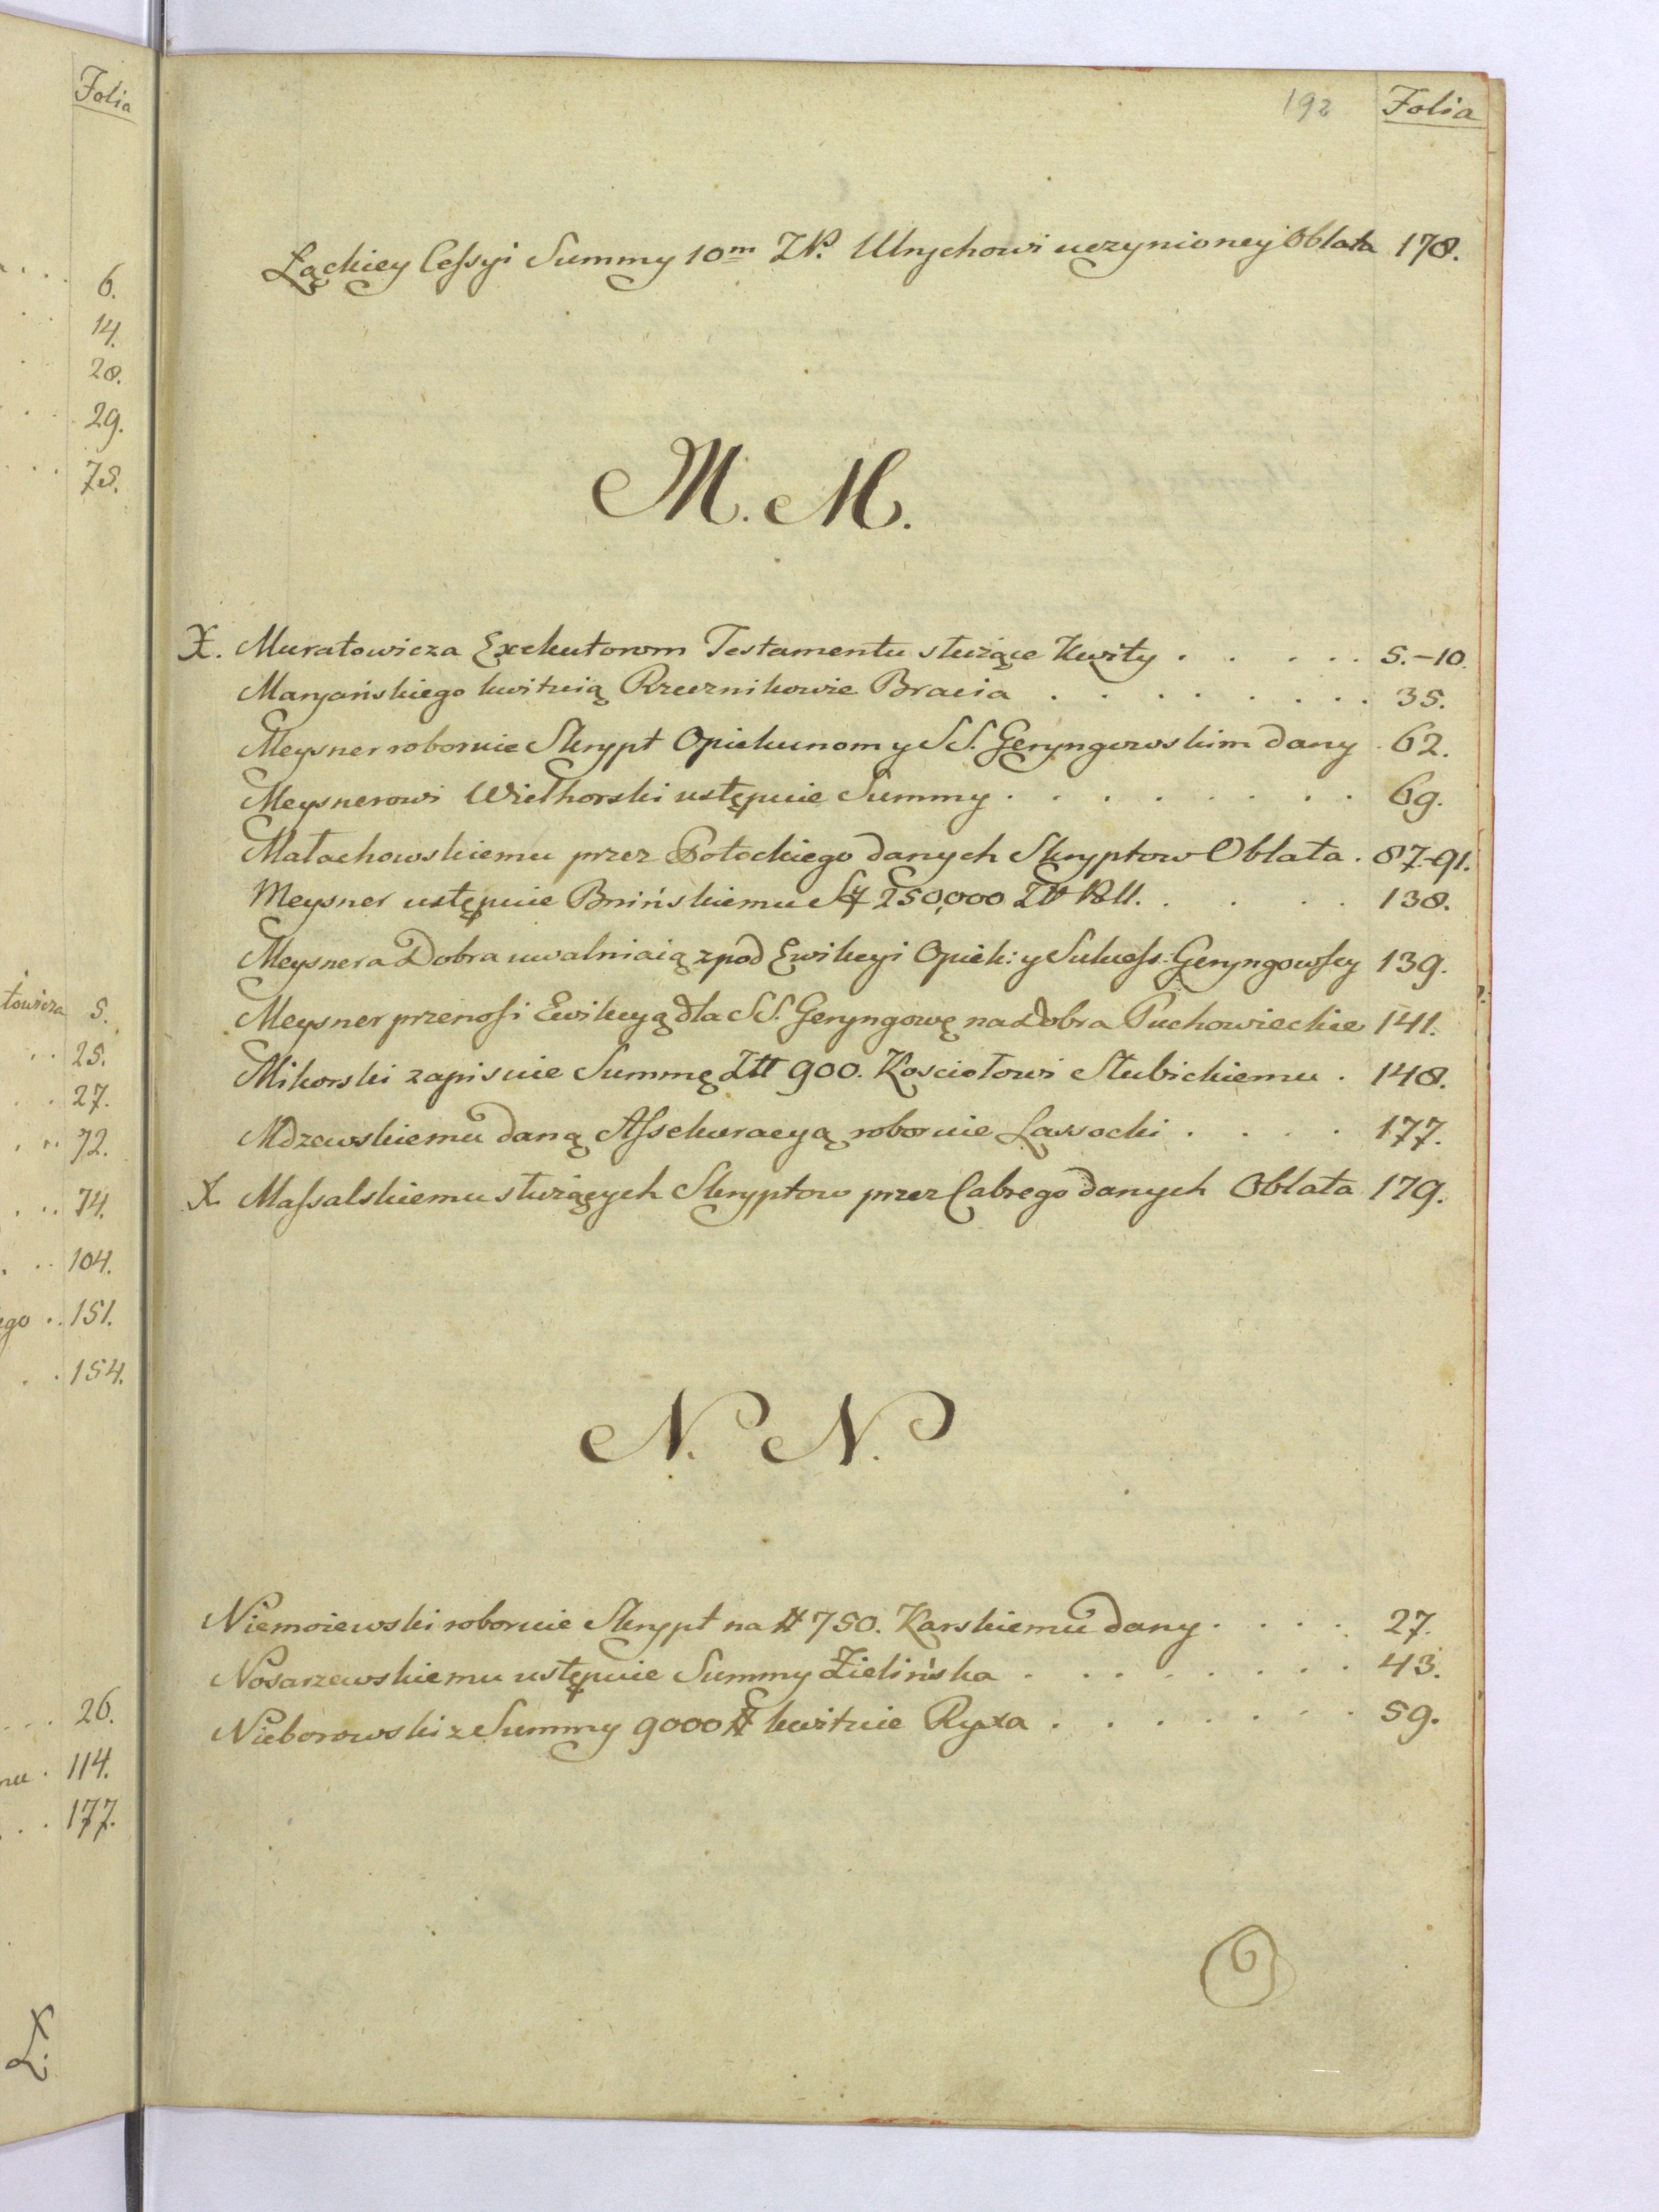 Folia
6.
14.
28.
29.
75.
towicza 5.
25.
27.
72.
74.
104.
ego . . 151.
154.
26.
mu . 114.
177.
Ł.
192 Folia
Łąckiey Cessyi Summy 10m ZP. Ulrychowi uczynioney Oblata 178.
M. M.
X. Muratowicza Exekutorom Testamentu służące Kwity . . . . . 5.-10.
Maryańskiego kwituią Rzecznikowie Bracia . . . . . . . . 35.
Meysner roboruie Skrypt Opiekunom y SS. Geryngowskim dany . 62.
Meysnerowi Wielhorski ustępuie Summy . . . . . . . . 69.
Małachowskiemu przez Potockiego danych Skryptow Oblata . 87.-91.
Meysner ustępuie Bnińskiemu 250,000 . . . . . 138.
Meysnera Dobra uwalniaią zpod Ewikcyi Opiek: y Sukcess. Geryngowscy 139.
Meysner przenosi Ewikcyą dla SS. Geryngowę na Dobra Puchowieckie 141.
Mikorski zapisuie Summę Zł 900. Kosciołowi Słubickiemu . 148.
Mdzewskiemu daną Assekuracyą roboruie Lassocki . . . . 177.
X Massalskiemu służących Skryptow przez Cabrego danych Oblata 179.
N. N.
Niemoiewski roboruie Skrypt na # 750. Karskiemu dany . . . . 27.
Nosarzewskiemu ustępuie Summy Zielińska . . . . . . . . 43.
Nieborowski z Summy 9000 # kwituie Ryxa . . . . . . . 59.